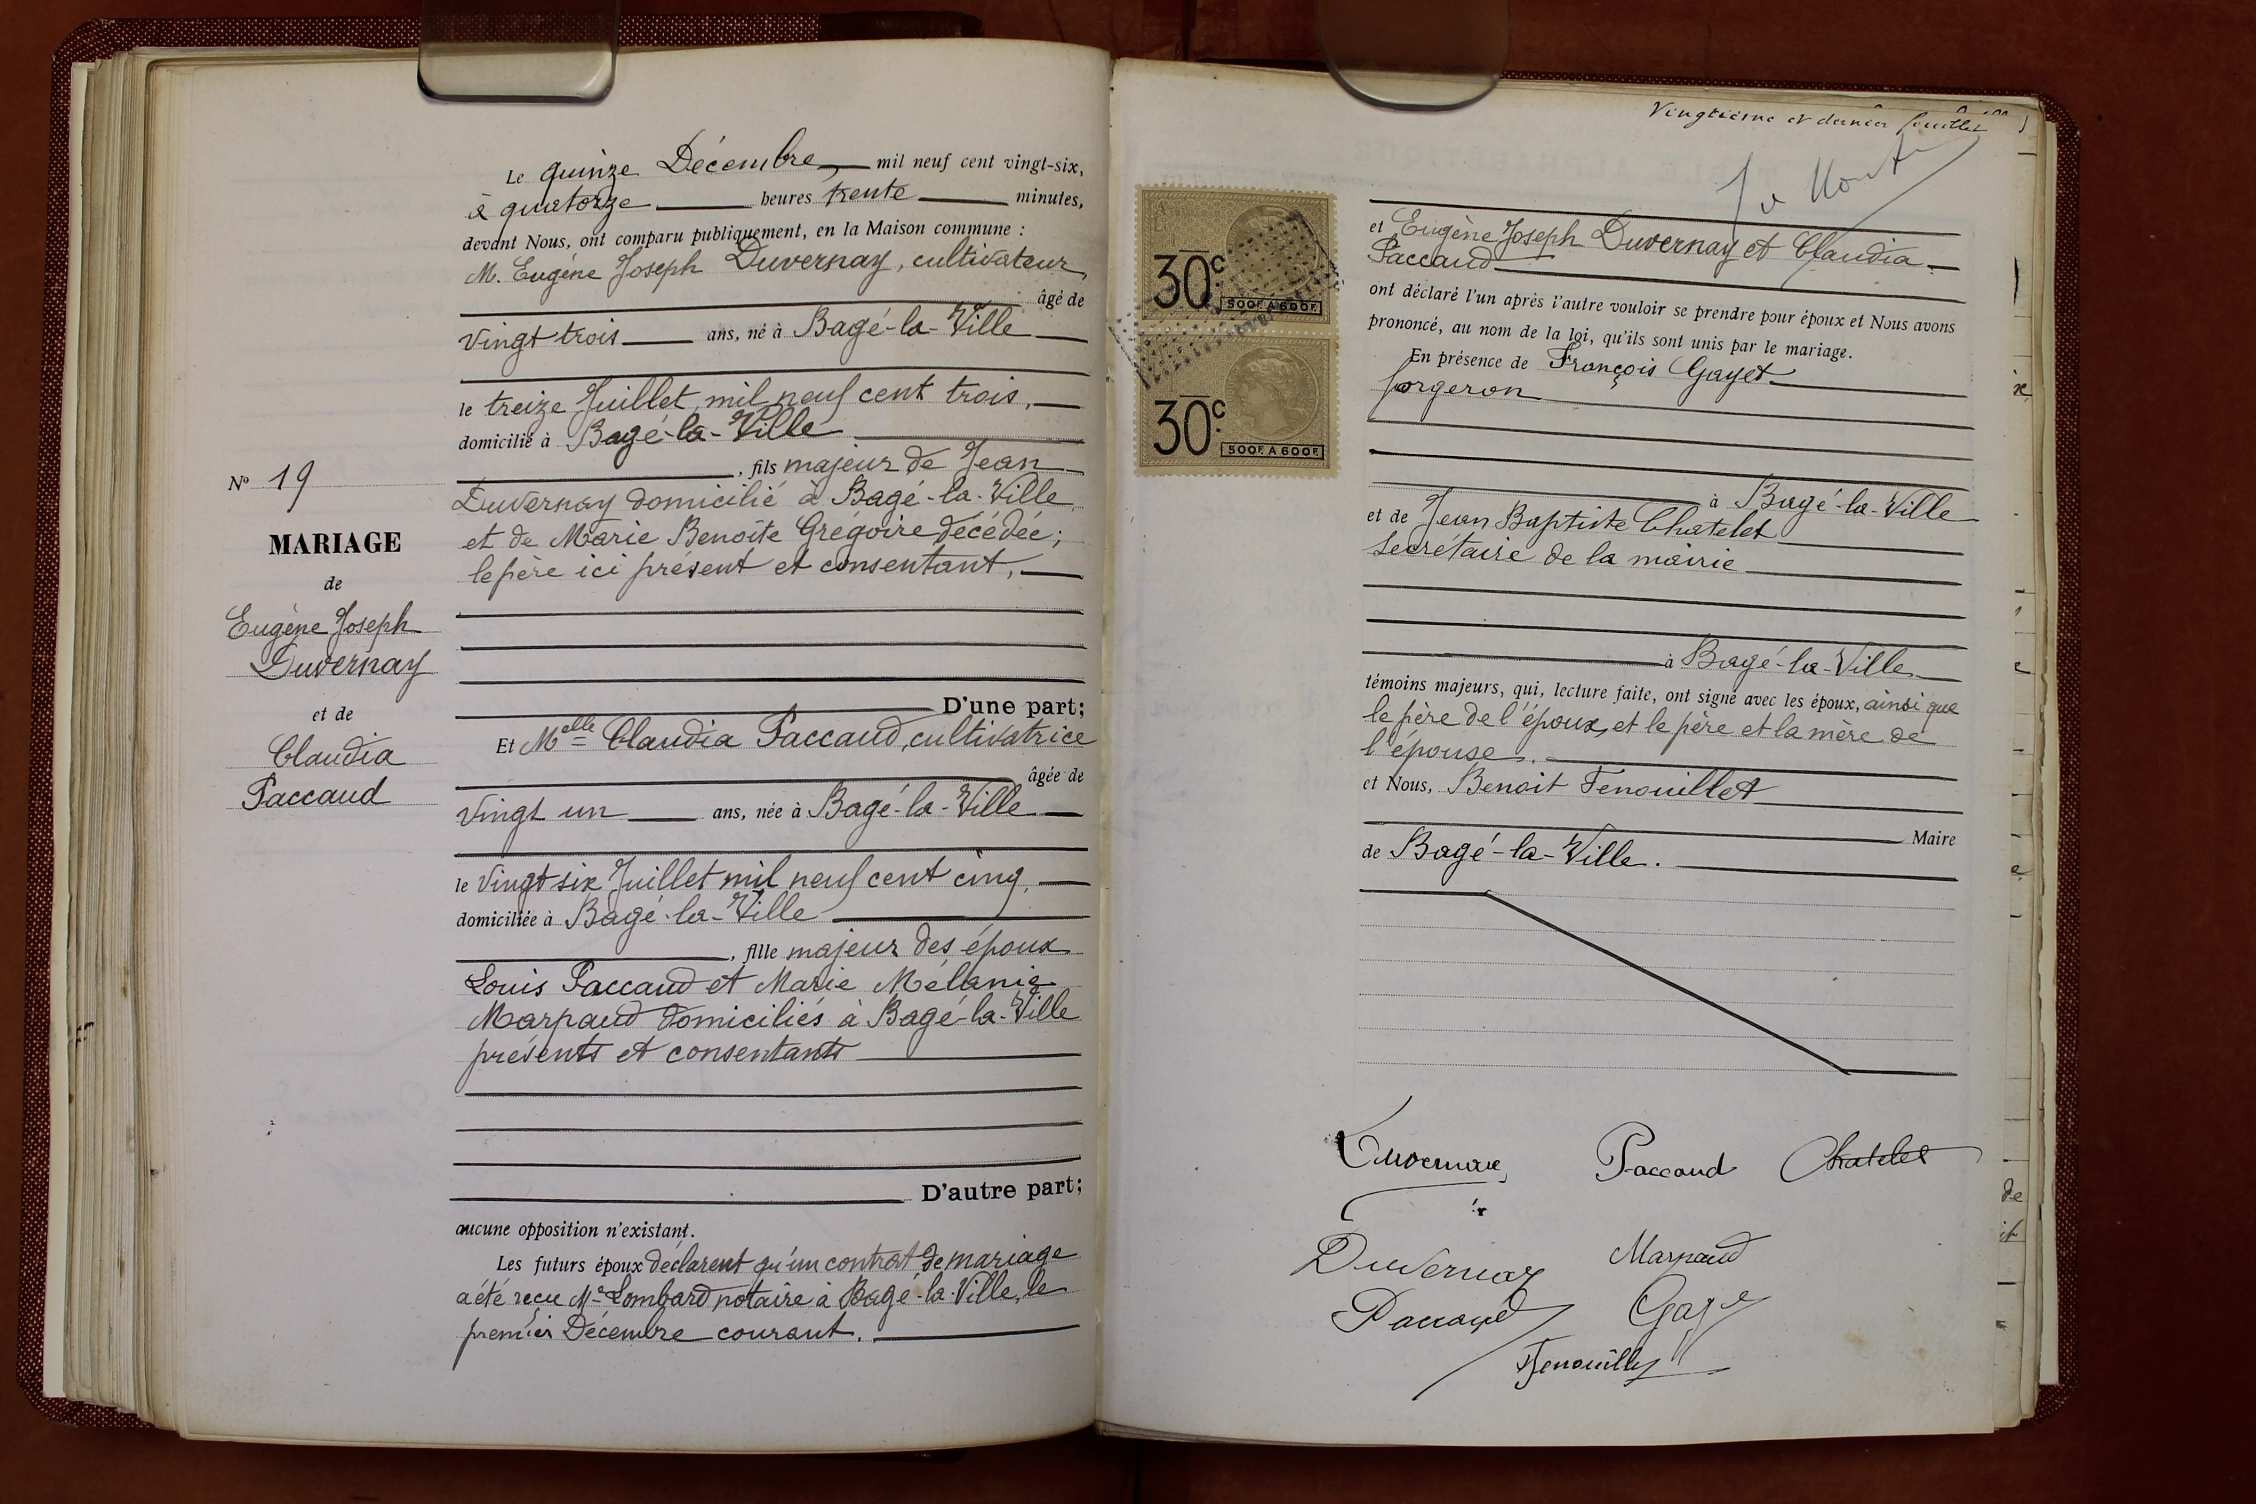 Le quinze Décembre, mil neuf cent vingt-six,
à quatorze heures trente minutes,
devant Nous, ont comparu publiquement, en la Maison commune :
M. Eugène Joseph Duvernay, cultivateur,
âgé de
vingt trois ans, né à Bagé-la-Ville
le treize Juillet mil neuf cent trois,
domicilié à Bagé-la-Ville
, fils majeur de Jean
Duvernay domicilié à Bagé-la-Ville
et de Marie Benoîte Grégoire décédée;
le père ici présent et consentant,
No 19
MARIAGE
de
Eugène Joseph
Duvernay
et de
Claudia
Paccaud
D'une part;
Et Melle Claudia Paccaud, cultivatrice
âgée de
vingt un ans, née à Bagé-la-Ville
le vingt six Juillet mil neuf cent cinq,
domiciliée à Bagé-la-Ville
, fille majeur des époux
Louis Paccaud et Marie Mélanie
Marpaud domiciliés à Bagé-la-Ville
présents et consentants
D'autre part;
aucune opposition n'existant.
Les futurs époux déclarent qu'un contrat de mariage
a été reçu Me Lombard notaire à Bagé-la-Ville, le
premier Décembre courant.
Vingtième et dernier feuillet
30c.
500F. A 600F.
30c.
500F. A 600F.
et Eugène Joseph Duvernay et Claudia
Paccaud
ont déclaré l'un après l'autre vouloir se prendre pour époux et Nous avons
prononcé, au nom de la loi, qu'ils sont unis par le mariage.
En présence de François Gayet
forgeron
à Bagé-la-Ville
et de Jean Baptiste Chatelet
secrétaire de la mairie
à Bagé-la-Ville
témoins majeurs, qui, lecture faite, ont signé avec les époux, ainsi que
le père de l'époux, et le père et la mère de
l'épouse.
et Nous, Benoit Fenouillet
Maire
de Bagé-la-Ville.
Duvernay Paccaud Chatelet
Duvernay Marpaud
Paccaud Gayet
Fenouillet